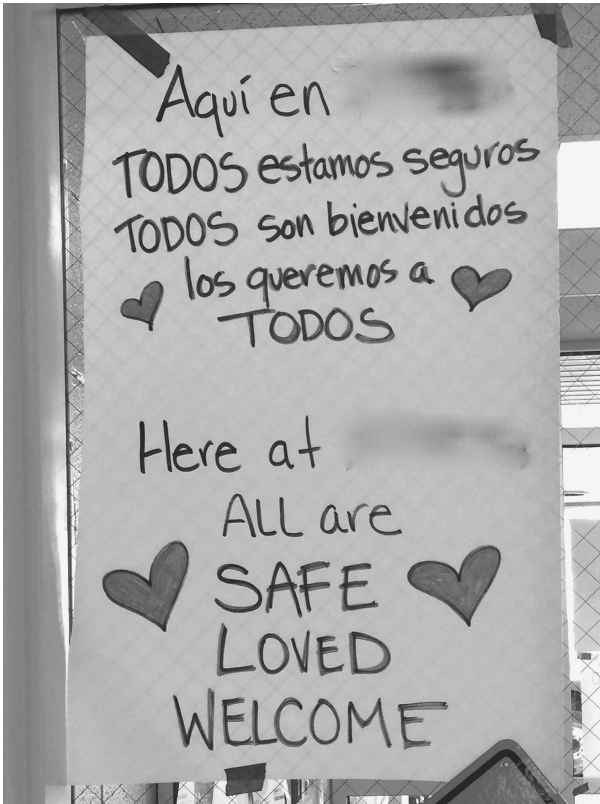 Aquí en
TODOS estamos seguros
TODOS son bienvenidos
los queremos a
TODOS
Here at
ALL are
SAFE
LOVED
WELCOME